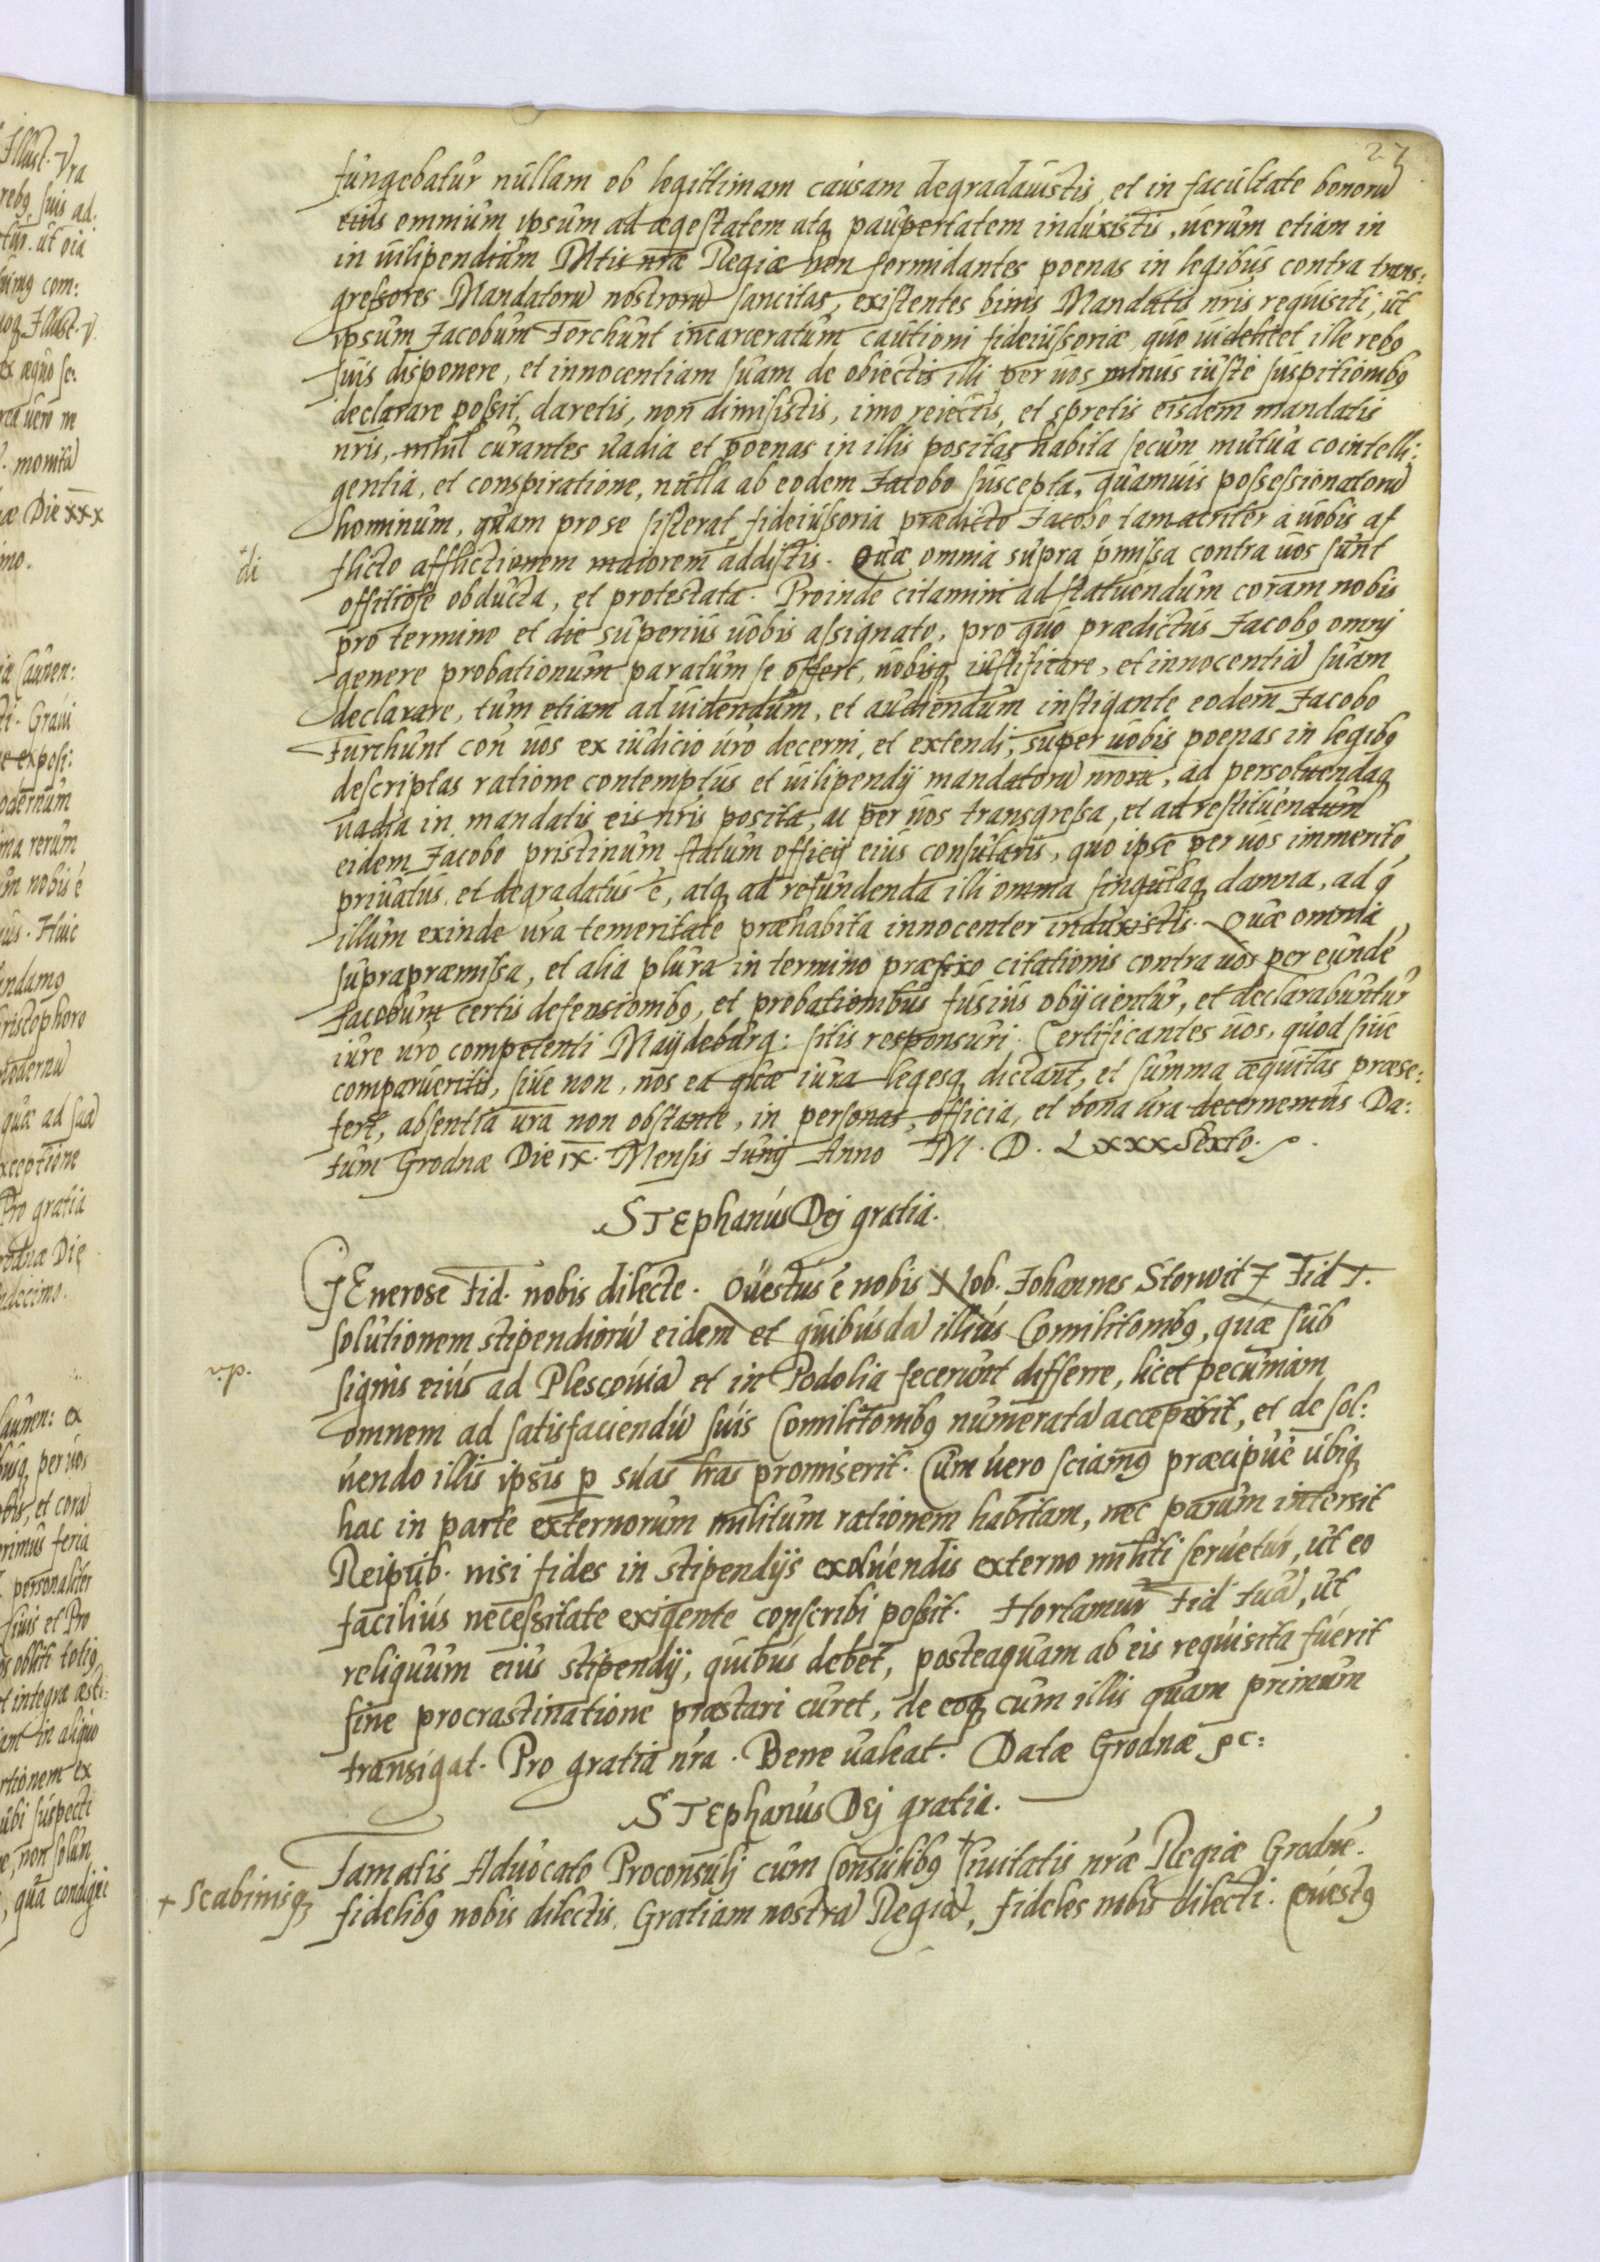 27
fungebatur nullam ob legittimam causam degradauistis, et in facultate bonorū
eius omnium ipsum ad aegestatem atq paupertatem induxistis, uerum etiam in
in uilipendium Mtis nrae Regiae non formidantes poenas in legibus contra trans:
gressores Mandatorū nostrorū sancitas, existentes binis Mandatis nris requisiti, ut
ipsum Jacobum Forchunt incarceratum cautioni fideiussoriae, quo uidelicet ille reb9
suis disponere, et innocentiam suam de obiectis illi per uos minus iuste suspitionib9
declarare possit, daretis, non dimisistis, imo reiectis, et spretis eisdem mandatis
nris, nihil curantes uadia et poenas in illis positas habita secum mutua cointelli:
gentia, et conspiratione, nulla ab eodem Jacobo suscepta, quamuis possessionatorū
hominum, quam pro se sisterat, fideiussoria praedicto Jacobo tam acriter a uobis af
+ di
flicto afflictionem maiorem + addistis. Quae omnia supra pmissa contra uos sunt
offitiose obducta, et protestata. Proinde citamini ad statuendum coram nobis
pro termino et die superius uobis assignato, pro quo praedictus Jacob9 omnj
genere probationum paratum se offert, uobisq iustificare, et innocentiā suam
declarare, tum etiam ad uidendum, et audiendum instigante eodem Jacobo
Furchunt con uos ex iudicio uro decerni, et extendi, super uobis poenas in legib9
descriptas ratione contemptus et uilipendij mandatorū nrorū, ad persoluendaq
uadia in mandatis eis nris posita, ac per uos transgressa, et ad restituendum
eidem Jacobo pristinum statum officij eius consularis, quo ipse per uos immerito
priuatus, et degradatus e, atq ad refundenda illi omnia singulaq damna, ad q
illum exinde ura temeritate praehabita innocenter induxistis. Quae omnia
suprapraemissa, et alia plura in termino praefixo citationis contra uos per eundē
Jacobum certis defensionib9, et probationibus fusius obijcientur, et declarabuntur
iure uro competenti Maydeburg: sitis responsuri. Certificantes uos, quod siue
comparueritis, siue non, nos ea quae iura legesq dictant, et summa aequitas praese:
fert, absentia ura non obstante, in personas, officia, et bona ura decernemus. Da:
tum Grodnae Die ix. Mensis Junij Anno M. D. LxxxSexto.
STEphanus Dej gratia.
GEnerose Fid. nobis dilecte. Questus e nobis Nob. Johannes Storwitz Fid T.
solutionem stipendiorū eidem et quibusdā illius Comilitonib9, quae sub
v.p.
signis eius ad Plescouiā et in Podolia fecerunt differre, licet pecuniam
omnem ad satisfaciendū suis Comilitonib9 numeratā acceperit, et de sol:
uendo illis ipsis p suas lras promiserit. Cum uero sciam9 praecipue ubiq
hac in parte externorum militum rationem habitam, nec parum intersit
Reipub. nisi fides in stipendijs exoluendis externo militi seruetur, ut eo
facilius necessitate exigente conscribi possit. Hortamur Fid tuā, ut
reliquum eius stipendij, quibus debet, posteaquam ab eis requisita fuerit
sine procrastinatione praestari curet, de eoq cum illis quam primum
transigat. Pro gratia nra. Bene ualeat. Datae Grodnae &c:
STEphanus Dej gratia.
Famatis Aduocato Proconsulj cum Consulib9 + Ciuitatis nrae Regiae Grodnē.
+ Scabinisq
fidelib9 nobis dilectis, Gratiam nostrā Regiā, fideles nobis dilecti. Quest9